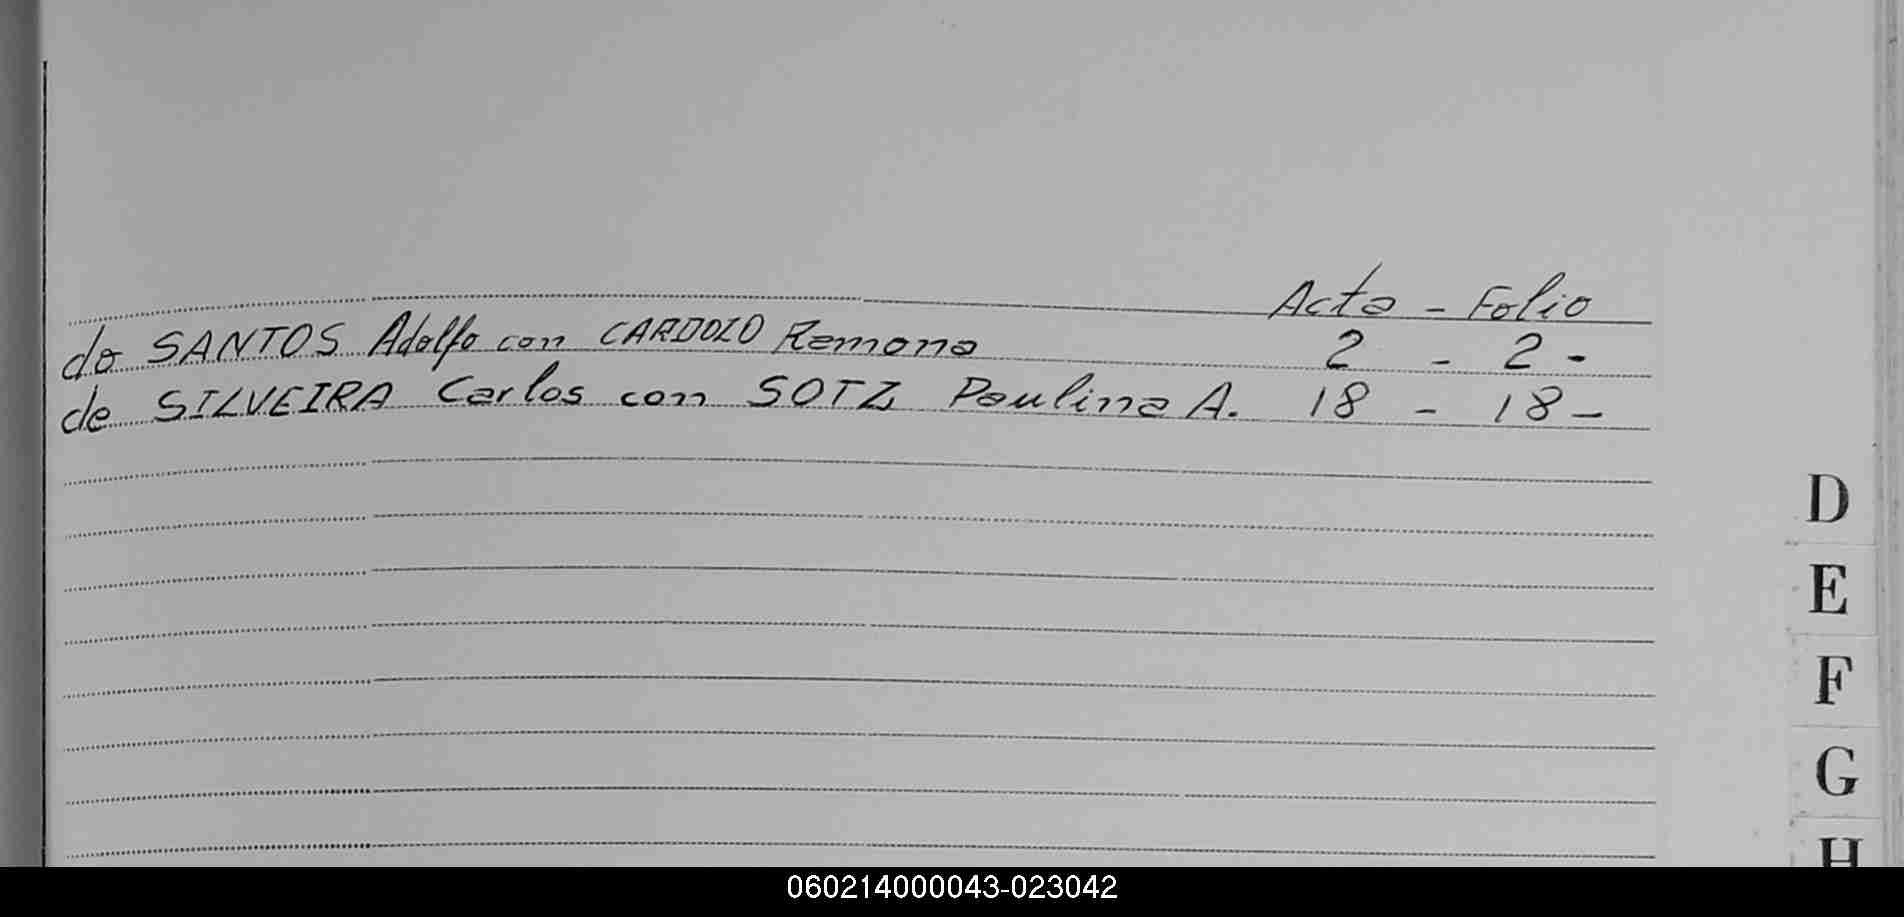 Acta - Folio
do SANTOS Adolfo con CARDOZO Ramona 2 - 2 -
de SILVEIRA Carlos con SOTZ Paulina A. 18 - 18 -
D
E
F
G
H
060214000043-023042